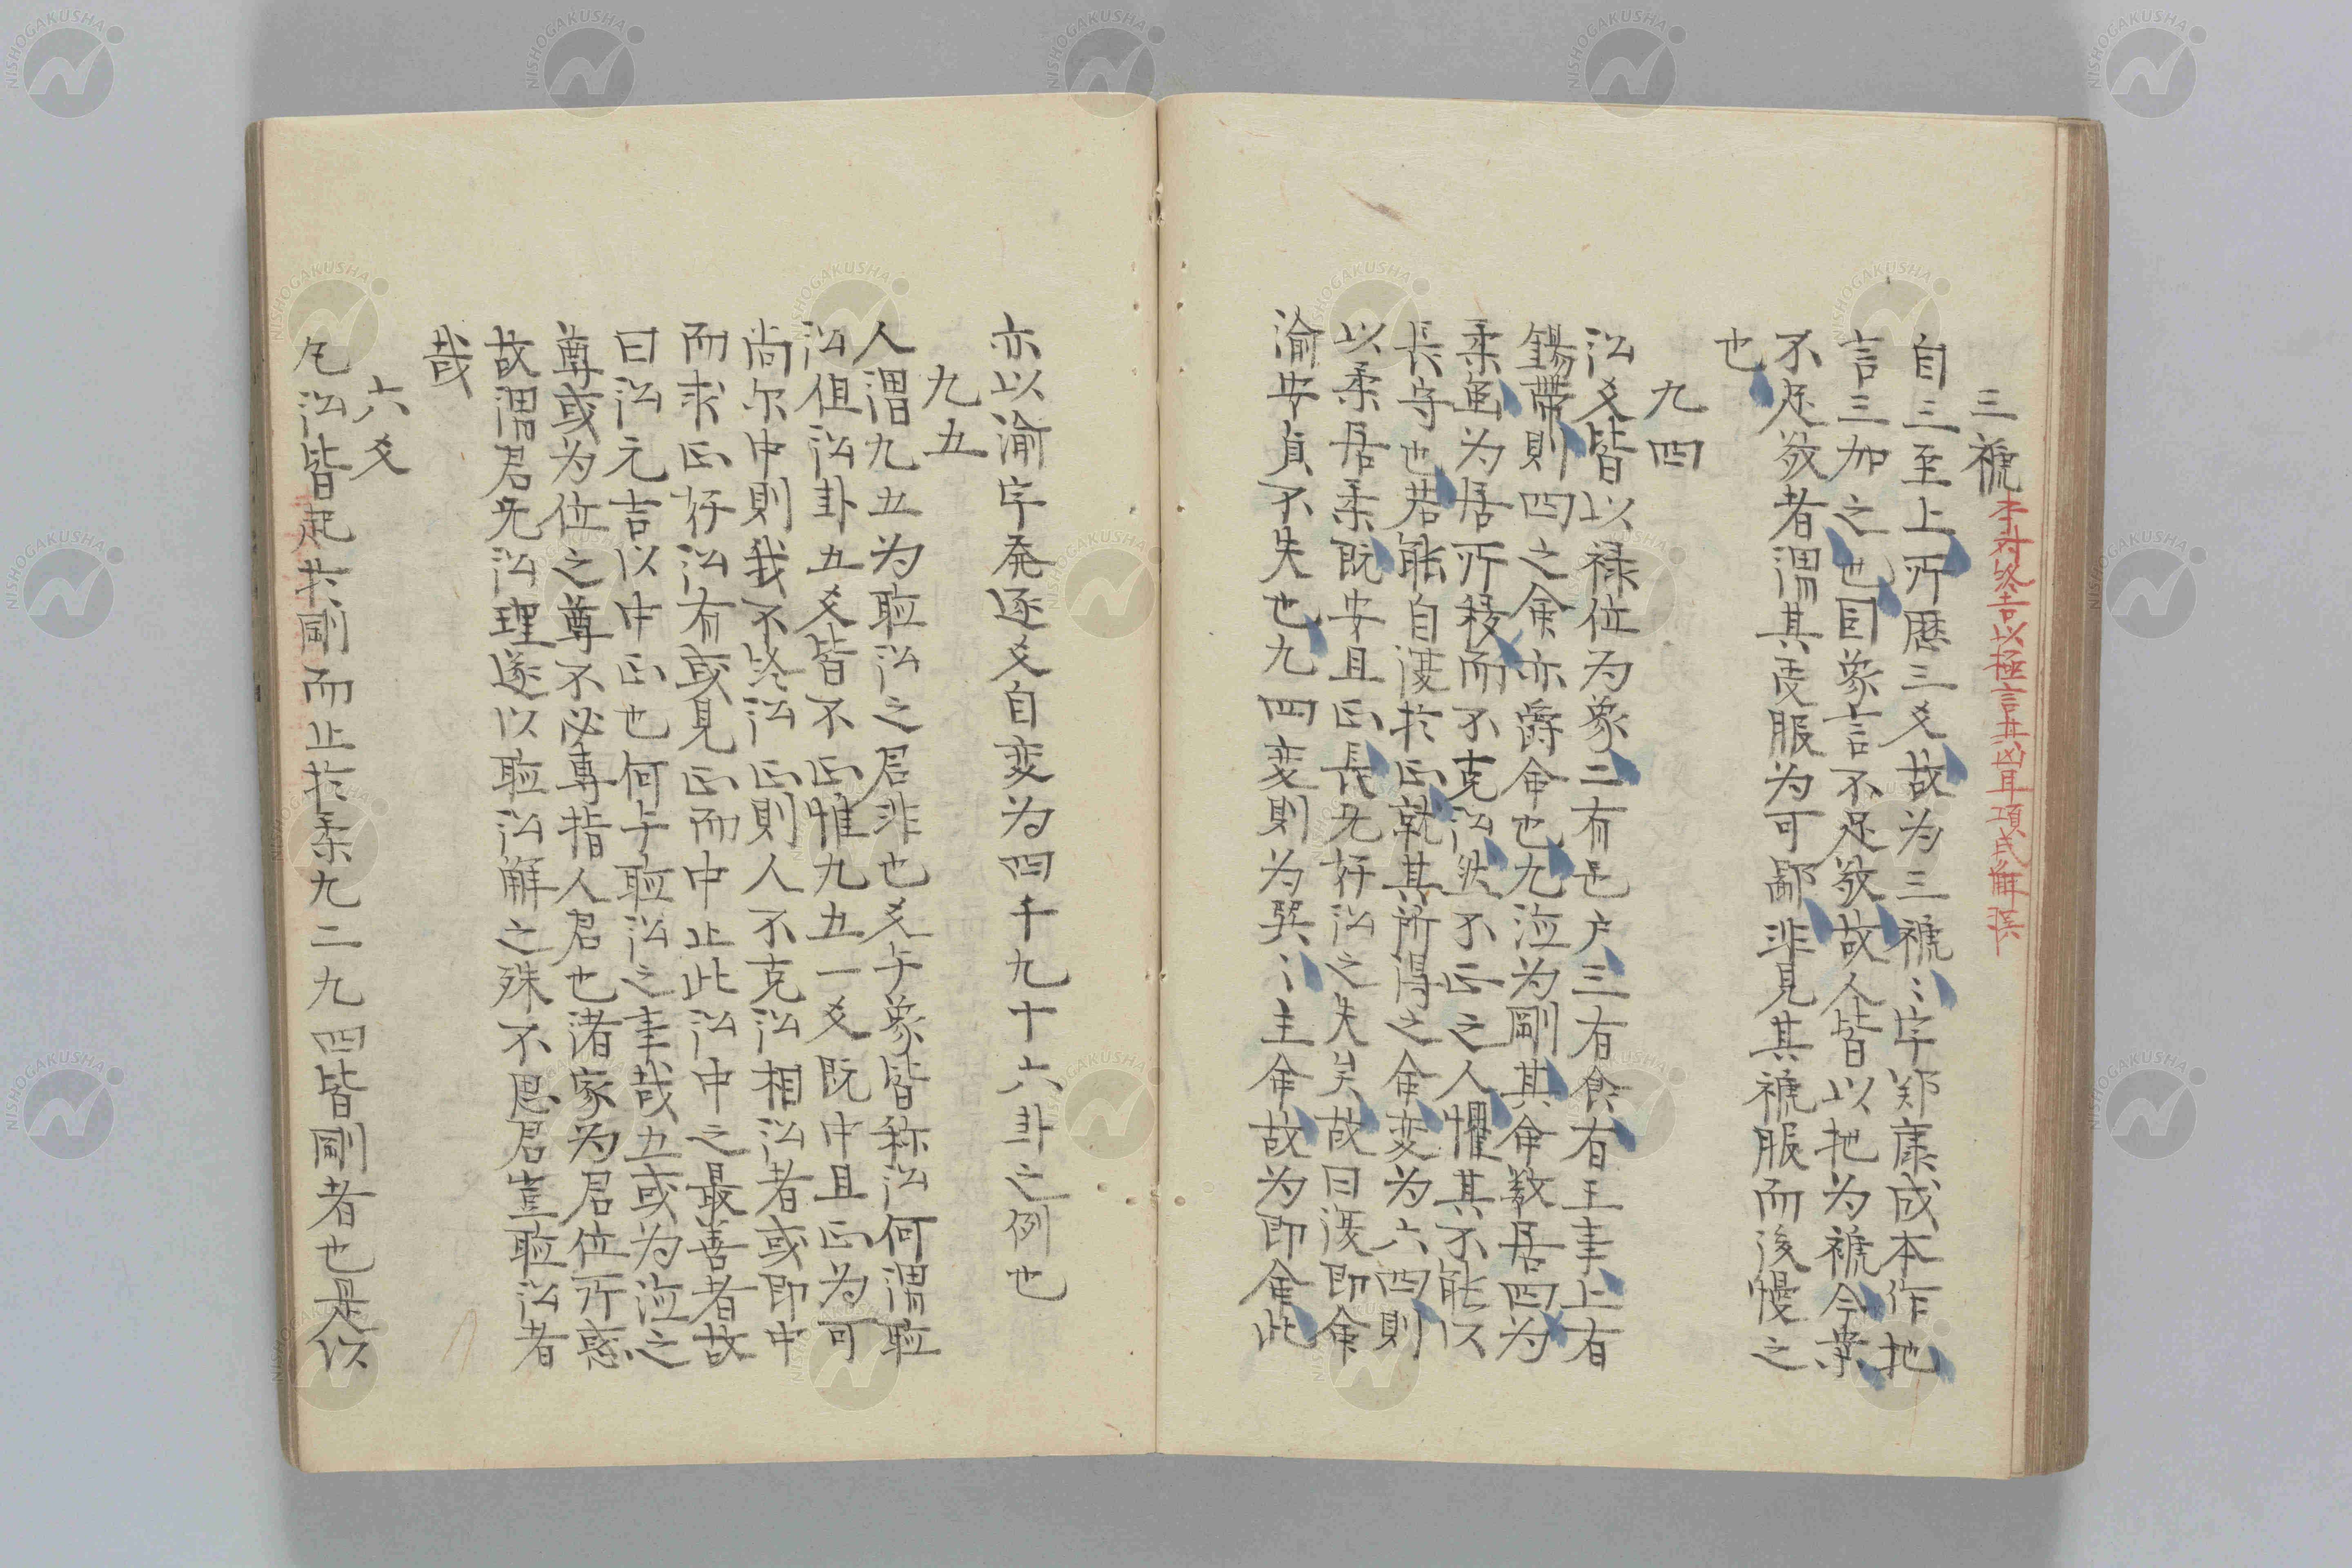 三褫 本対終吉以極言其凶耳項氏解誤
自三至上所歴三爻故為三褫〻字郑康成本作扡
言三加之也囙象言不足敬故人皆以扡為褫今桒
不足敬者謂其受服為可鄙非見其褫服而後慢之
也
九四
訟爻皆以禄位為象二有邑户三有食有王事上有
錫帶則四之命亦爵命也九泣為剛其命数居四為
柔色為居所移而不克訟㳄不正之人懼其不能以
長守也若能自復於正就其所得之命变為六四則
以柔居柔既安且正長无好訟之失矣故曰復即命
渝安貞不失也九四变則為巽〻主命故為即命此
亦以渝字発逐爻自变為四千九十六卦之例也
九五
人謂九五為聴訟之君非也爻与象皆称訟何謂聴
訟但訟卦五爻皆不正惟九五一爻既中且正為可
尚尔中則我不終訟正則人不克訟相訟者或即中
而求正好訟有或見正而中止此訟中之最善者故
曰訟元吉以中正也何与聴訟之事哉五或为泣之
尊或为位之尊不必專指人君也渚家为君位所惑
故謂君无訟理遂以聴訟解之殊不思君豈聴訟者
哉
六爻
凡訟皆起於剛而止於柔九二九四皆剛者也是以
NISHOGAKUSHA